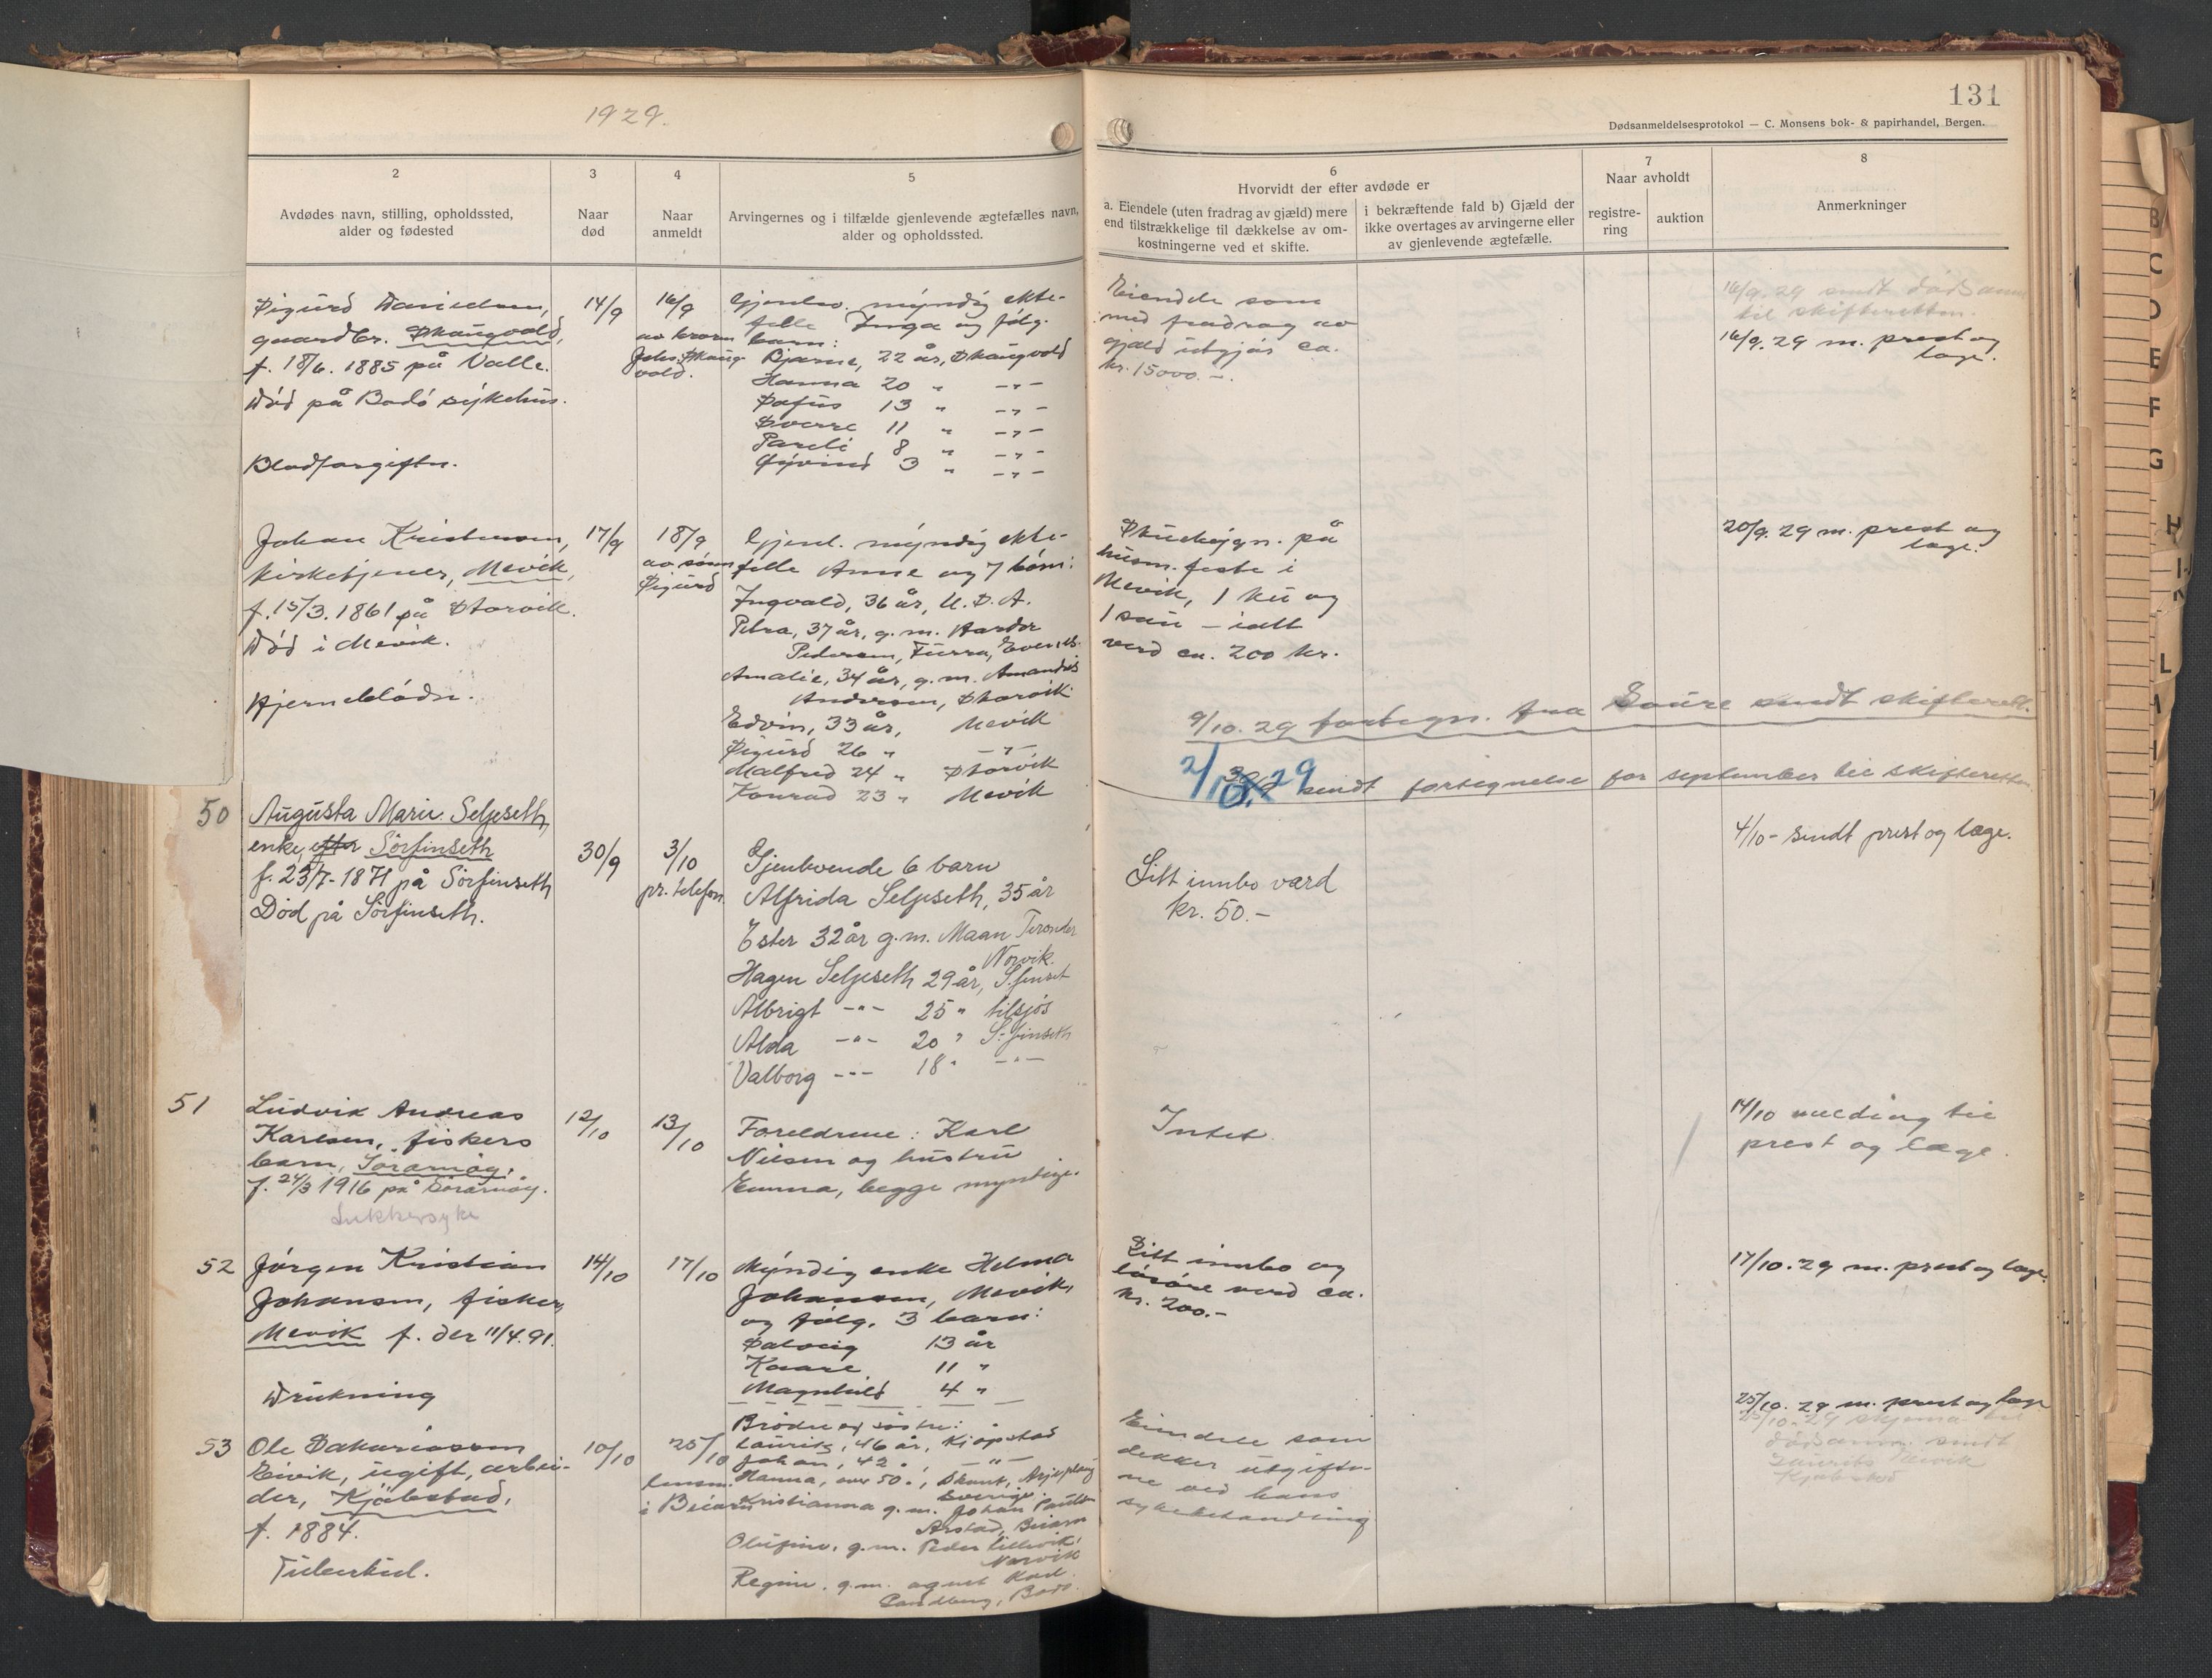 1929.
131
Dødsanmeldelsesprotokol — C. Monsens bok- & papirhandel, Bergen.
2
Avdødes navn, stilling, opholdssted,
alder og fødested
3
Naar
død
4
Naar
anmeldt
5
Arvingernes og i tilfælde gjenlevende ægtefælles navn,
alder og opholdssted.
6
Hvorvidt der efter avdøde er
a. Eiendele (uten fradrag av gjæld) mere
end tilstrækkelige til dækkelse av om-
kostningerne ved et skifte.
i bekræftende fald b) Gjæld der
ikke overtages av arvingerne eller
av gjenlevende ægtefælle.
7
Naar avholdt
registre-
ring
auktion
8
Anmerkninger
Sigurd Danielsen,
gaardbr. Skaugvold,
f. 18/6. 1885 på Valle.
Död på Bodö sykehus.
Blodforgiftn.
14/9
16/9
av broren
Johs. Skaug-
vold.
Gjenlev. myndig ekte-
felle Inga og fölg.
barn:
Bjarne, 22 år, Skaugvold
Hanna 20 " -"-
13 " -"-
Sverre 11 " -"-
Pareli 8 " -"-
Öyvind 3 " -"-
Eiendele som
med fradrag av
gjæld utgjör ca.
kr. 15000.-.
16/9. 29 sendt dödsanm.
til skifteretten.
16/9. 29 m. prest og
læge.
Johan Kristensen,
kirketjener, Mevik,
f. 15/3. 1861 på Storvik.
Död i Mevik.
Hjernelblödn.
17/9
18/9
av sönn
Sigurd
Gjenl. myndig ekte-
felle Anne og 7 barn:
Ingvald, 36 år, U.S.A.
Petra, 37 år, g.m. Hardor
Pedersen, Furra,
Amalie, 34 år, g.m. Amandus
Andersen, Storvik
Edvin, 33 år, Mevik
Sigurd 26 " -"-
Malfred 24 " Storvik
Konrad 23 " Mevik
på
husm. feste i
Mevik, 1 ku og
1 sau - ialt
verd ca. 200 kr.
20/9. 29 m. prest og
læge.
9/10. 29 fortegn. fra Saure sendt skifterett.
2/10. 29 sendt fortegnelse for september til skifteretten
50
Augusta Marie Seljeseth,
enke, efter Sörfinseth
f. 23/7-1871 på Sörfinseth
Död på Sörfinseth.
30/9
3/10
pr. telefon
Gjenlevende 6 barn
Alfrida Seljeseth, 35 år
Ester 32 år g.m. Maan
Norvik.
Hagen Seljeseth 29 år, S.finset
Albrigt -"- 25 " tilsjös
Alda -"- 20 " S.finseth
Valborg -"- 18 " -"-
Litt innbo værd
kr. 50.-
4/10 - sendt prest og læge.
51
Ludvik Andreas
Karlsen, fiskers
barn, Sörarnöy,
f. 24/3 1916 på Sörarnöy.
Sukkersyke
12/10
13/10
Foreldrene: Karl
Nilsen og hustru
Emma, begge myndige.
Intet.
14/10 melding til
prest og læge.
52
Jörgen Kristian
Johansen, fisker,
Mevik f. der 11/4. 91.
Drukning
14/10
17/10
Myndig enke Helma
Johansen, Mevik,
og fölg. 3 barn:
Solveig 13 år
Kaare 11 "
Magnhild 4 "
Litt innbo og
lösöre verd ca.
kr. 200.-
17/10. 29 m. prest og læge.
53
Ole Sakariassen
Eivik, ugift, arbei-
der, Kjöbstad,
f. 1884.
Tuberkul.
10/10
25/10
lensm.
i Beiarn
Brödre og söstre:
Laurits, 46 år, Kjöpstad
Johan, 42 " -"-
Hanna, over 50 ", Arjeplaug
Sverige.
Kristianna g.m. Johan
Arstad, Beiarn
g.m. Peder Lillevik,
Norvik
Regine. g.m. agent Karl
Sandberg, Bodö.
Eiendele som
dekker utgifte-
ne ved hans
sykebehandling
25/10. 29 m. prest og læge
25/10. 29 skjema til
dödsanm. sendt
Laurits Eivik
Kjöbstad
B
C
D
E
F
G
H
L